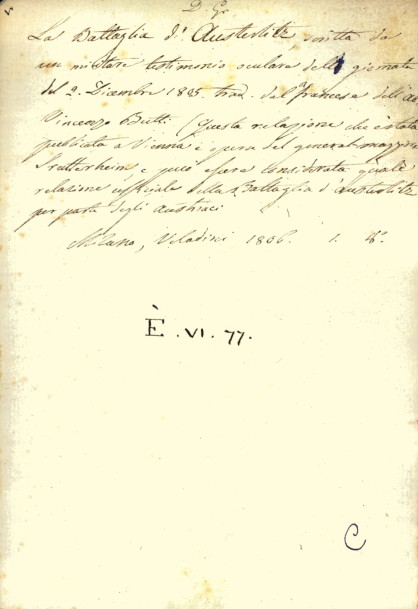 D. Gr.
La Battaglia d'Austerlitz, scritta da
un militare testimonio oculare della giornata
del 2. Dicembre 1805. trad. dal francese dell'
Vincenzo Butti (Questa relazione che è stata
pubblicata a Vienna è opera del general-maggiore
Stutterheim e può essere considerata quale
relazione ufficiale della Battaglia d'Austerlitz
per parte degli austriaci
Milano, Veladini 1806. 1. 8°.
È. VI. 77.
C